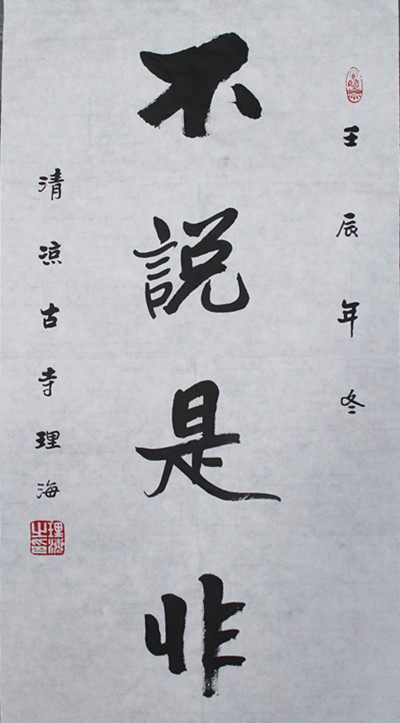 壬辰年冬
不説是非
清凉古寺理海